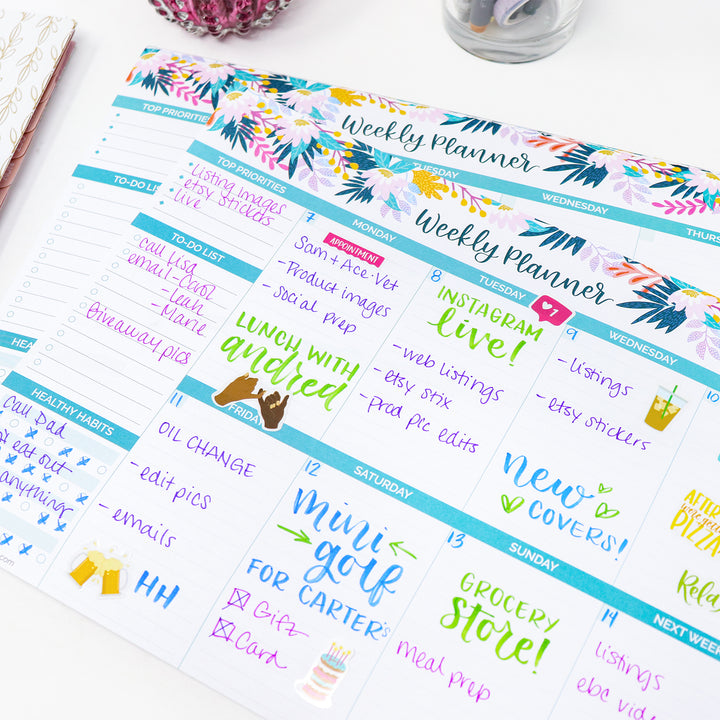 Weekly Planner
TOP PRIORITIES
TUESDAY
WEDNESDAY
THURS
TO-DO LIST
HEA
Weekly Planner
TOP PRIORITIES
Listing images
etsy stickers
live
TO-DO LIST
call Lisa
email-Carol
-Leah
-Marie
Giveaway pics
HEALTHY HABITS
Call Dad
eat out
anything
.com
MONDAY
7
APPOINTMENT
Sam + Ace-Vet
-Product images
-social prep
LUNCH WITH
andred
TUESDAY
8
INSTAGRAM
live!
1
-web listings
-etsy stix
-prod pic edits
WEDNESDAY
9
-listings
-etsy stickers
new
COVERS!
10
AFTER
PIZZA
Rela
FRIDAY
11
OIL CHANGE
-edit pics
-emails
HH
SATURDAY
12
mini
golf
FOR CARTER'S
Gift
Card
SUNDAY
13
GROCERY
Store!
meal prep
NEXT WEEK
14
listings
ebc vid